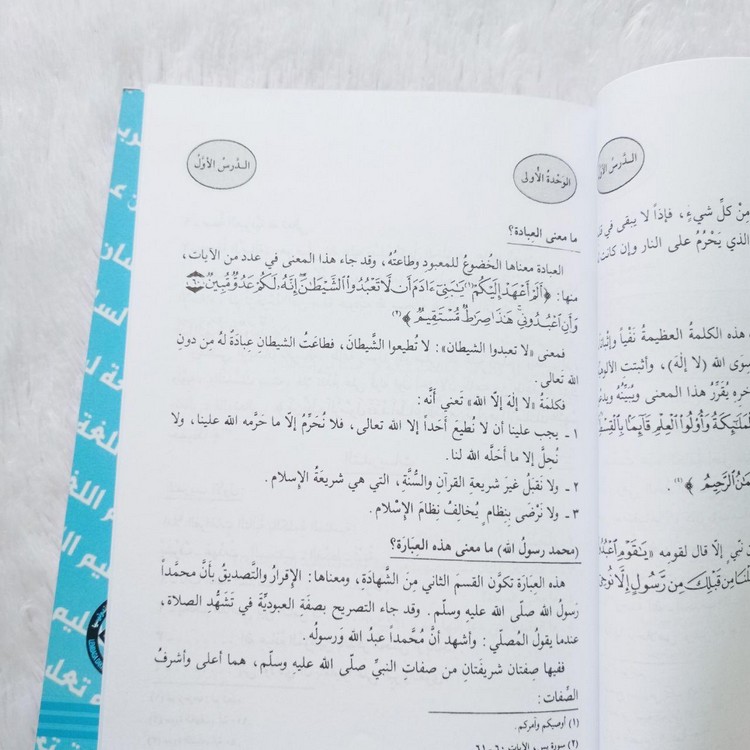 الوَحْدةُ الأُولى
الـدَّرسُ الأوّلُ
ما معنى العِبادة؟
العبادة معناها الخُضوعُ للمعبودِ وطاعتُهُ، وقد جاء هذا المعنى في عدد من الآيات،
منها: ﴿أَلَمْ أَعْهَدْ إِلَيْكُمْ(١) يَٰبَنِىٓ ءَادَمَ أَن لَّا تَعْبُدُوا۟ ٱلشَّيْطَٰنَ إِنَّهُۥ لَكُمْ عَدُوٌّ مُّبِينٌ ٦٠
وَأَنِ ٱعْبُدُونِى هَٰذَا صِرَٰطٌ مُّسْتَقِيمٌ﴾(٢)
فمعنى «لا تعبدوا الشيطان»: لا تُطيعوا الشَّيطانَ، فطاعَتُ الشيطانِ عِبادَةٌ لهُ مِن دونِ
الله تَعالى.
فكلمَةُ «لا إلٰهَ إلّا الله» تَعني أَنَّه:
١ ـ يجب علينا أن لا نُطيعَ أَحَداً إلا الله تعالى، فلا نُحَرِّمُ إلّا ما حَرَّمه الله علينا، ولا
نُحلَّ إلا ما أحَلَّه الله لنا.
٢ ـ ولا نَقبَلُ غيرَ شريعةِ القرآنِ والسُّنَّةِ، التي هي شريعَةُ الإسلام.
٣ ـ ولا نَرْضَى بِنظامٍ يُخالِفُ نِظامَ الإسْلام.
(محمد رسولُ الله) ما معنى هذه العِبارَة؟
هذه العِبارَة تكوَّن القسم الثاني مِنَ الشَّهادَةِ، ومعناها: الإقرارُ والتَّصديقُ بأنَّ محمَّداً
رَسولُ الله صلّى الله عليهِ وسلّم. وقد جاء التصريح بصفَةِ العبوديّةِ في تَشَهُّدِ الصلاة،
عندما يقولُ المُصلّي: وأشهد أنَّ مُحمَّداً عبدُ الله وَرسولُه.
ففيها صِفتان شريفَتانِ من صفاتِ النبيِّ صلّى الله عليه وسلّم، هما أعلى وأشرفُ
الصِّفات:
(١) أوصيكم وآمركم.
(٢) سورة يس، الآيات: ٦٠ ـ ٦١
الـدَّرسُ
مِنْ كلِّ شيءٍ، فإذَاً لا يبقى في
الذي يَحْرُمُ على النار وإن كانت
هذه الكلمةُ العظيمةُ نَفْياً
سِوَى الله (لا إلهَ)، وأثبتتِ
يُقَرِّرُ هذا المعنى ويُبيِّنُه
ٱلْمَلَٰٓئِكَةُ وَأُو۟لُوا۟ ٱلْعِلْمِ قَآئِمًۢا
ٱلرَّحِيمُ ﴾(٤).
نبي إلّا قال لقومِه «يَٰقَوْمِ
مِن قَبْلِكَ مِن رَّسُولٍ إِلَّا